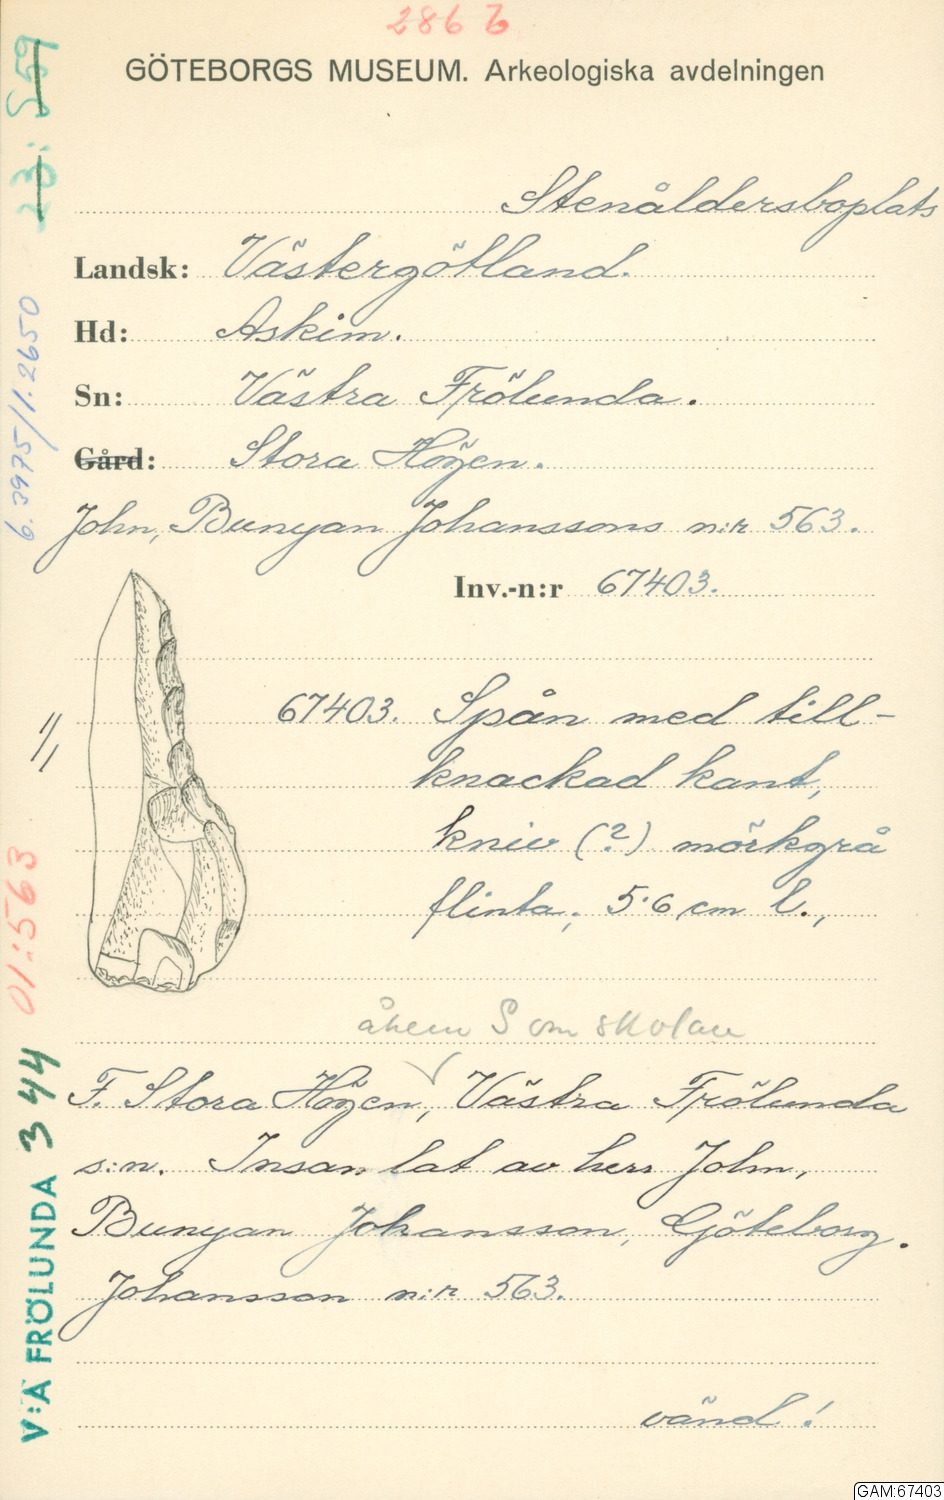 286 b
GÖTEBORGS MUSEUM. Arkeologiska avdelningen
Stenåldersboplats
Landsk: Västergötland.
Hd: Askim.
Sn: Västra Frölunda.
Gård: Stora Högen.
John, Bunyan Johanssons n:r 563.
Inv.-n:r 67403.
67403. Spån med till-
knackad kant,
kniv (?) mörkgrå
flinta, 5·6 cm l.,
1/1
S om skolan
F. Stora Högen, Västra Frölunda
s:n. Insamlat av herr John,
Bunyan Johansson, Göteborg.
Johansson n:r 563.
vänd!
23:559
6.3975/1.2650
01:563
V:A FRÖLUNDA 344
GAM:67403